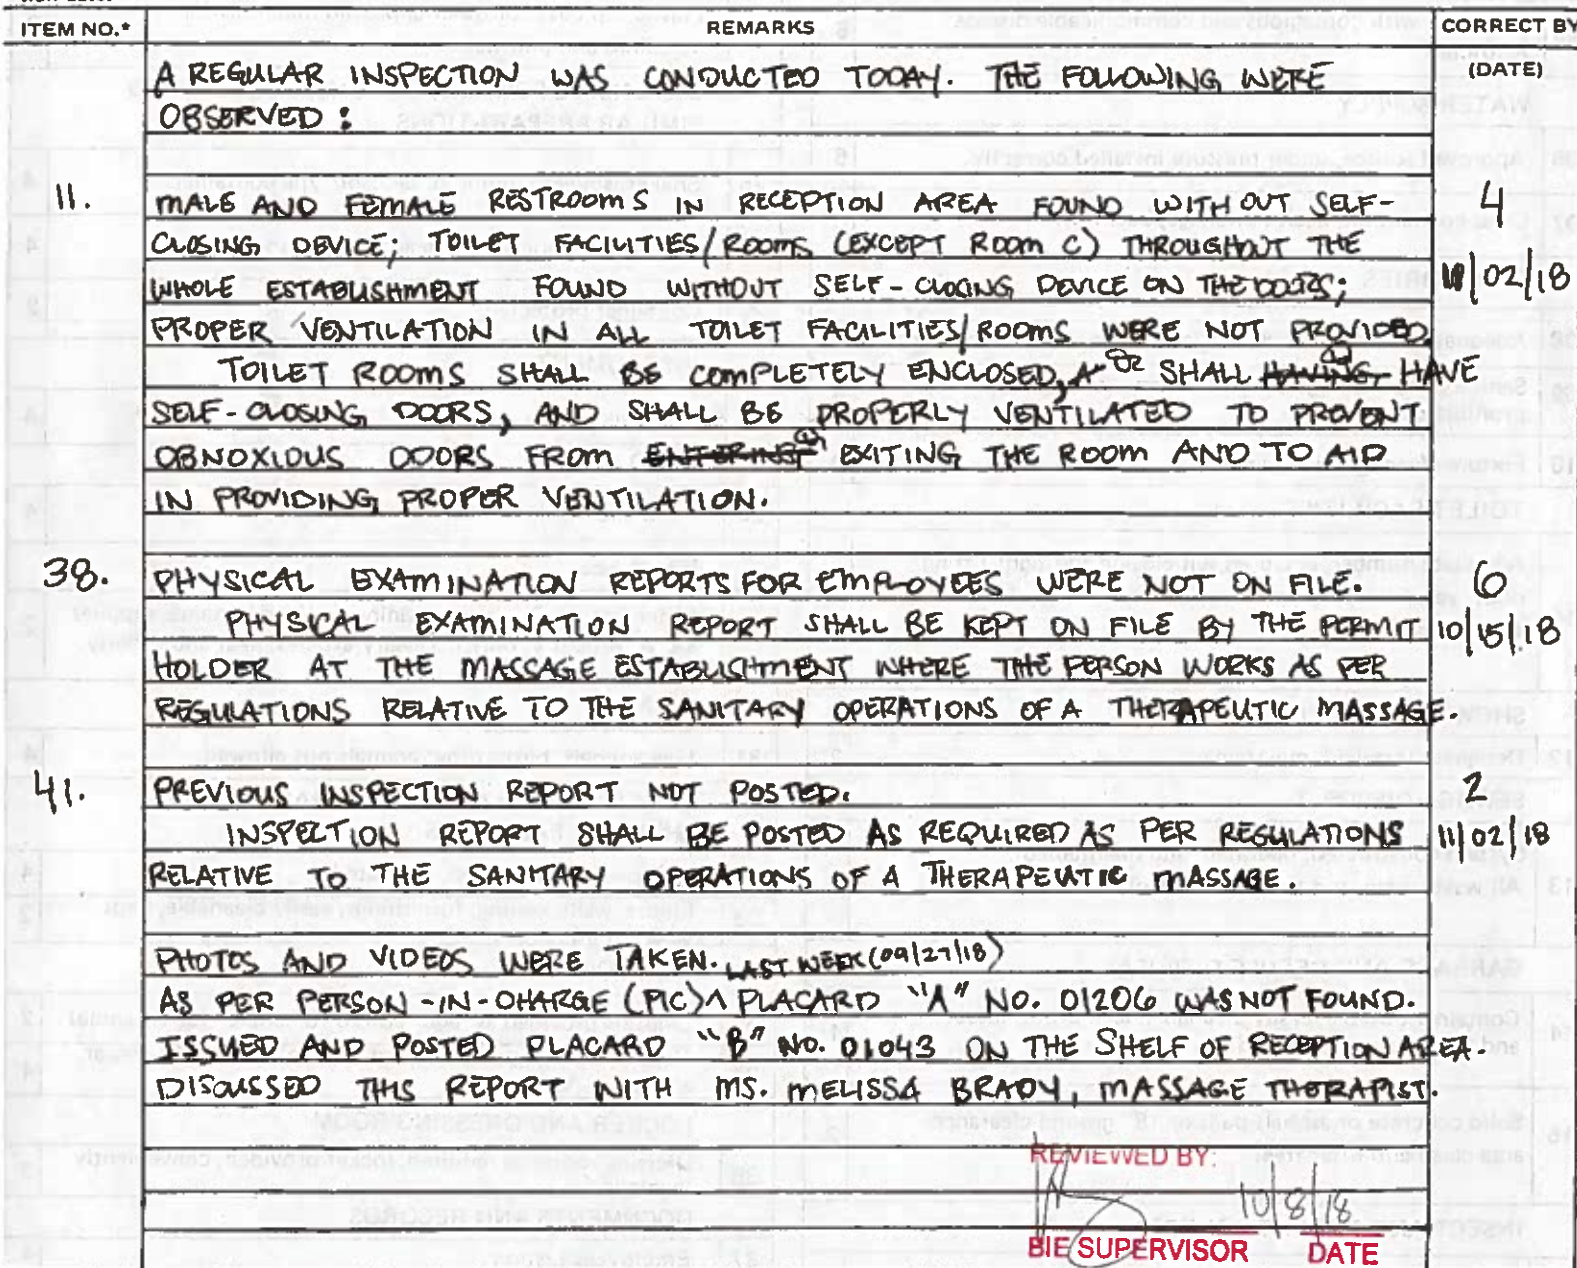 ITEM NO.* REMARKS CORRECT BY
(DATE)
A REGULAR INSPECTION WAS CONDUCTED TODAY. THE FOLLOWING WERE
OBSERVED :
11. MALE AND FEMALE RESTROOMS IN RECEPTION AREA FOUND WITHOUT SELF- 4
CLOSING DEVICE; TOILET FACILITIES/ROOMS (EXCEPT ROOM C) THROUGHOUT THE
WHOLE ESTABLISHMENT FOUND WITHOUT SELF-CLOSING DEVICE ON THE DOORS; 11/02/18
PROPER VENTILATION IN ALL TOILET FACILITIES/ROOMS WERE NOT PROVIDED
TOILET ROOMS SHALL BE COMPLETELY ENCLOSED, SHALL HAVING HAVE
SELF-CLOSING DOORS, AND SHALL BE PROPERLY VENTILATED TO PREVENT
OBNOXIOUS ODORS FROM ENTERING EXITING THE ROOM AND TO AID
IN PROVIDING PROPER VENTILATION.
38. PHYSICAL EXAMINATION REPORTS FOR EMPLOYEES WERE NOT ON FILE. 6
PHYSICAL EXAMINATION REPORT SHALL BE KEPT ON FILE BY THE PERMIT 10/15/18
HOLDER AT THE MASSAGE ESTABLISHMENT WHERE THE PERSON WORKS AS PER
REGULATIONS RELATIVE TO THE SANITARY OPERATIONS OF A THERAPEUTIC MASSAGE.
41. PREVIOUS INSPECTION REPORT NOT POSTED. 2
INSPECTION REPORT SHALL BE POSTED AS REQUIRED AS PER REGULATIONS 11/02/18
RELATIVE TO THE SANITARY OPERATIONS OF A THERAPEUTIC MASSAGE.
PHOTOS AND VIDEOS WERE TAKEN.
LAST WEEK (09/27/18)
AS PER PERSON-IN-CHARGE (PIC) ^ PLACARD "A" NO. 01206 WAS NOT FOUND.
ISSUED AND POSTED PLACARD "B" NO. 01043 ON THE SHELF OF RECEPTION AREA.
DISCUSSED THIS REPORT WITH MS. MELISSA BRADY, MASSAGE THERAPIST.
REVIEWED BY:
10/8/18
BIE SUPERVISOR DATE